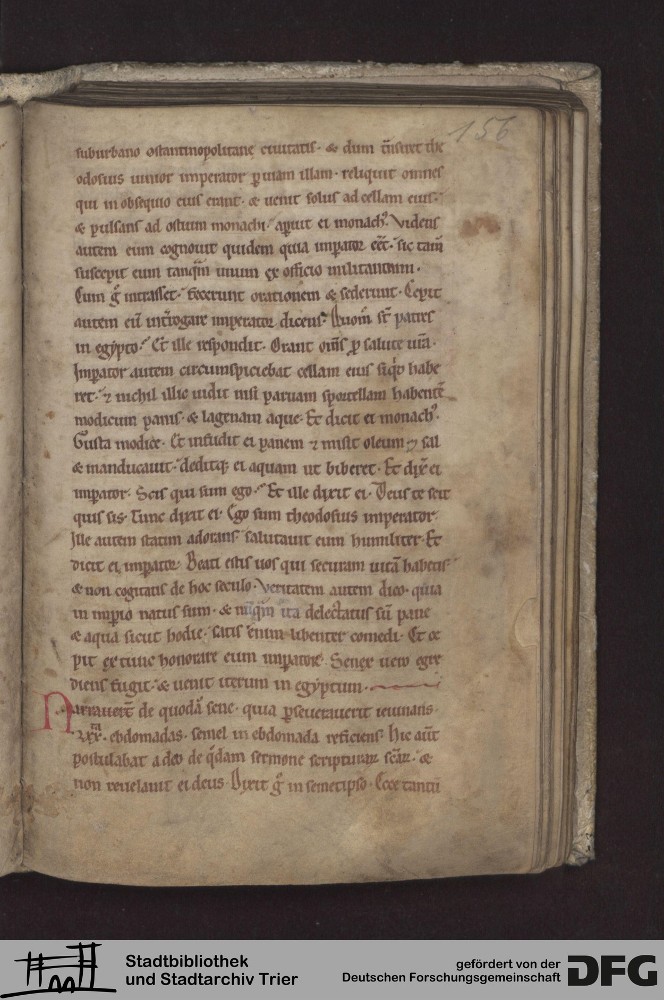 156
suburbano ꝯstantinopolitane ciuitatis. & dum t̄nsiret the
odosius iunior imperator p̱ uiam illam. reliquit omnes
qui in obsequio eius erant. & uenit solus ad cellam eius.
& pulsans ad ostium monachi. aperuit ei monachꝰ. Videns
autem eum cognouit quidem quia imp̱ator eēt. sic tam̄
suscepit eum tanq̄m unum ex officio militantium.
Cum g̊ intrasset. fecerunt orationem & sederunt. Cepit
autem eū int̄rogare imperator dicens. Quom̄ sт̄ patres
in egypto. Et ille respondit. Orant om̄s ꝓ salute tua.
Imp̱ator autem circumspiciebat cellam eius siq̇d habe
ret. ⁊ nichil illic uidit nisi paruam sportellam habentē
modicum panis. & lagenam aque. Et dicit ei monachꝰ.
Gusta modice. Et infudit ei panem ⁊ misit oleum ⁊ sal
& manducauit. deditq; ei aquam ut biberet. Et dix̄ ei
imp̱ator. Scis qui sum ego. Et ille dixit ei. Deus te scit
quis sis. Tunc dixit ei. Ego sum theodosius imperator.
Ille autem statim adorans. salutauit eum humiliter. Et
dicit ei imp̱ator. Beati estis uos qui securam uitā habetis
& non cogitatis de hoc seculo. Veritatem autem dico. quia
in imp̱io natus sum. & nūq̄m ita delectatus sū pane
& aqua sicut hodie. satis enim libenter comedi. Et ce
pit ex tunc honorare eum imp̱ator. Senex uero egre
diens fugit. & uenit iterum in egyptum.
Narrauer̄t de quodā sene. quia p̱seuerauerit ieiunans
.lxx. ebdomadas. semel in ebdomada reficiens. Hic aūt
postulabat a deo de q̇dam sermone scripturar̄ scār̄. &
non reuelauit ei deus. Dixit g̊ in semetipso. Ecce tantū
Stadtbibliothek
und Stadtarchiv Trier
gefördert von der
Deutschen Forschungsgemeinschaft
DFG